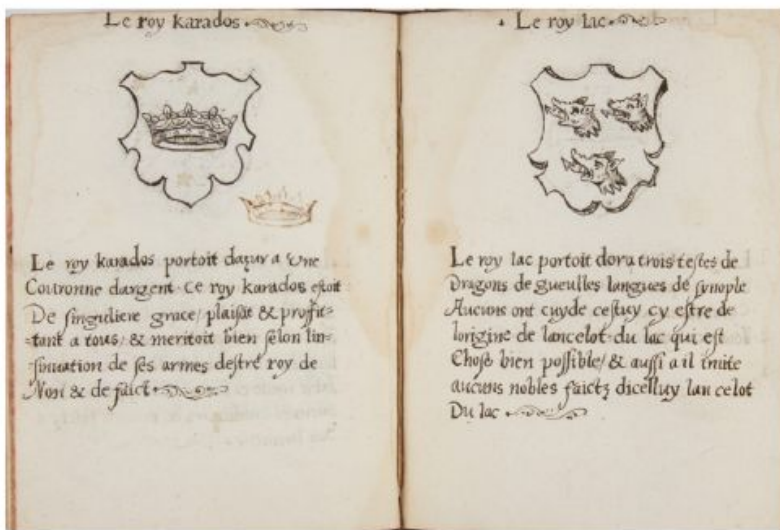 Le roy karados
Le roy karados portoit dazur a une
Couronne dargent. ce roy karados estoit
De singuliere grace/ plaisāt & proffit-
-tant a tous/ & meritoit bien selon lin-
-sinuation de ses armes destre roy de
Non & de faict
Le roy lac
Le roy lac portoit dor a trois testes de
Dragons de gueulles langues de synople
Aucuns ont cuyde cestuy cy estre de
lorigine de lancelot du lac qui est
Chose bien possible/ & aussi a il imite
aucuns nobles faictz dicelluy lancelot
Du lac